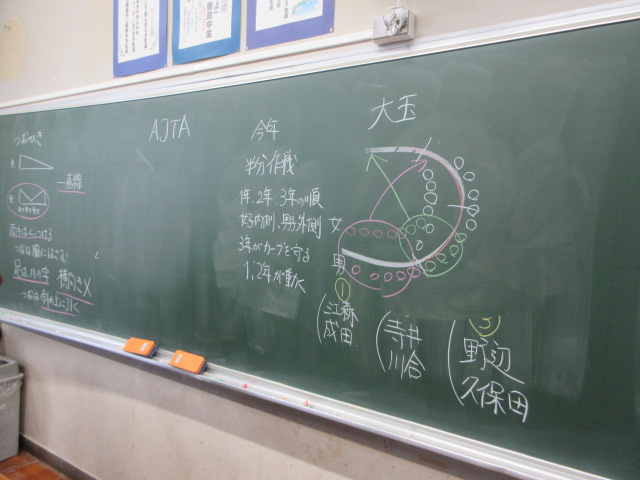 つなひき
一直線
足はハの字 横向き×
つなは斜め上に引く
AJTA
今年
半分作戦
1年、2年、3年の順
女子内側、男子外側
3年がカーブを守る
1、2年が動く
大玉
女
男
①
江森
成田
寺井
川合
③
野辺
久保田